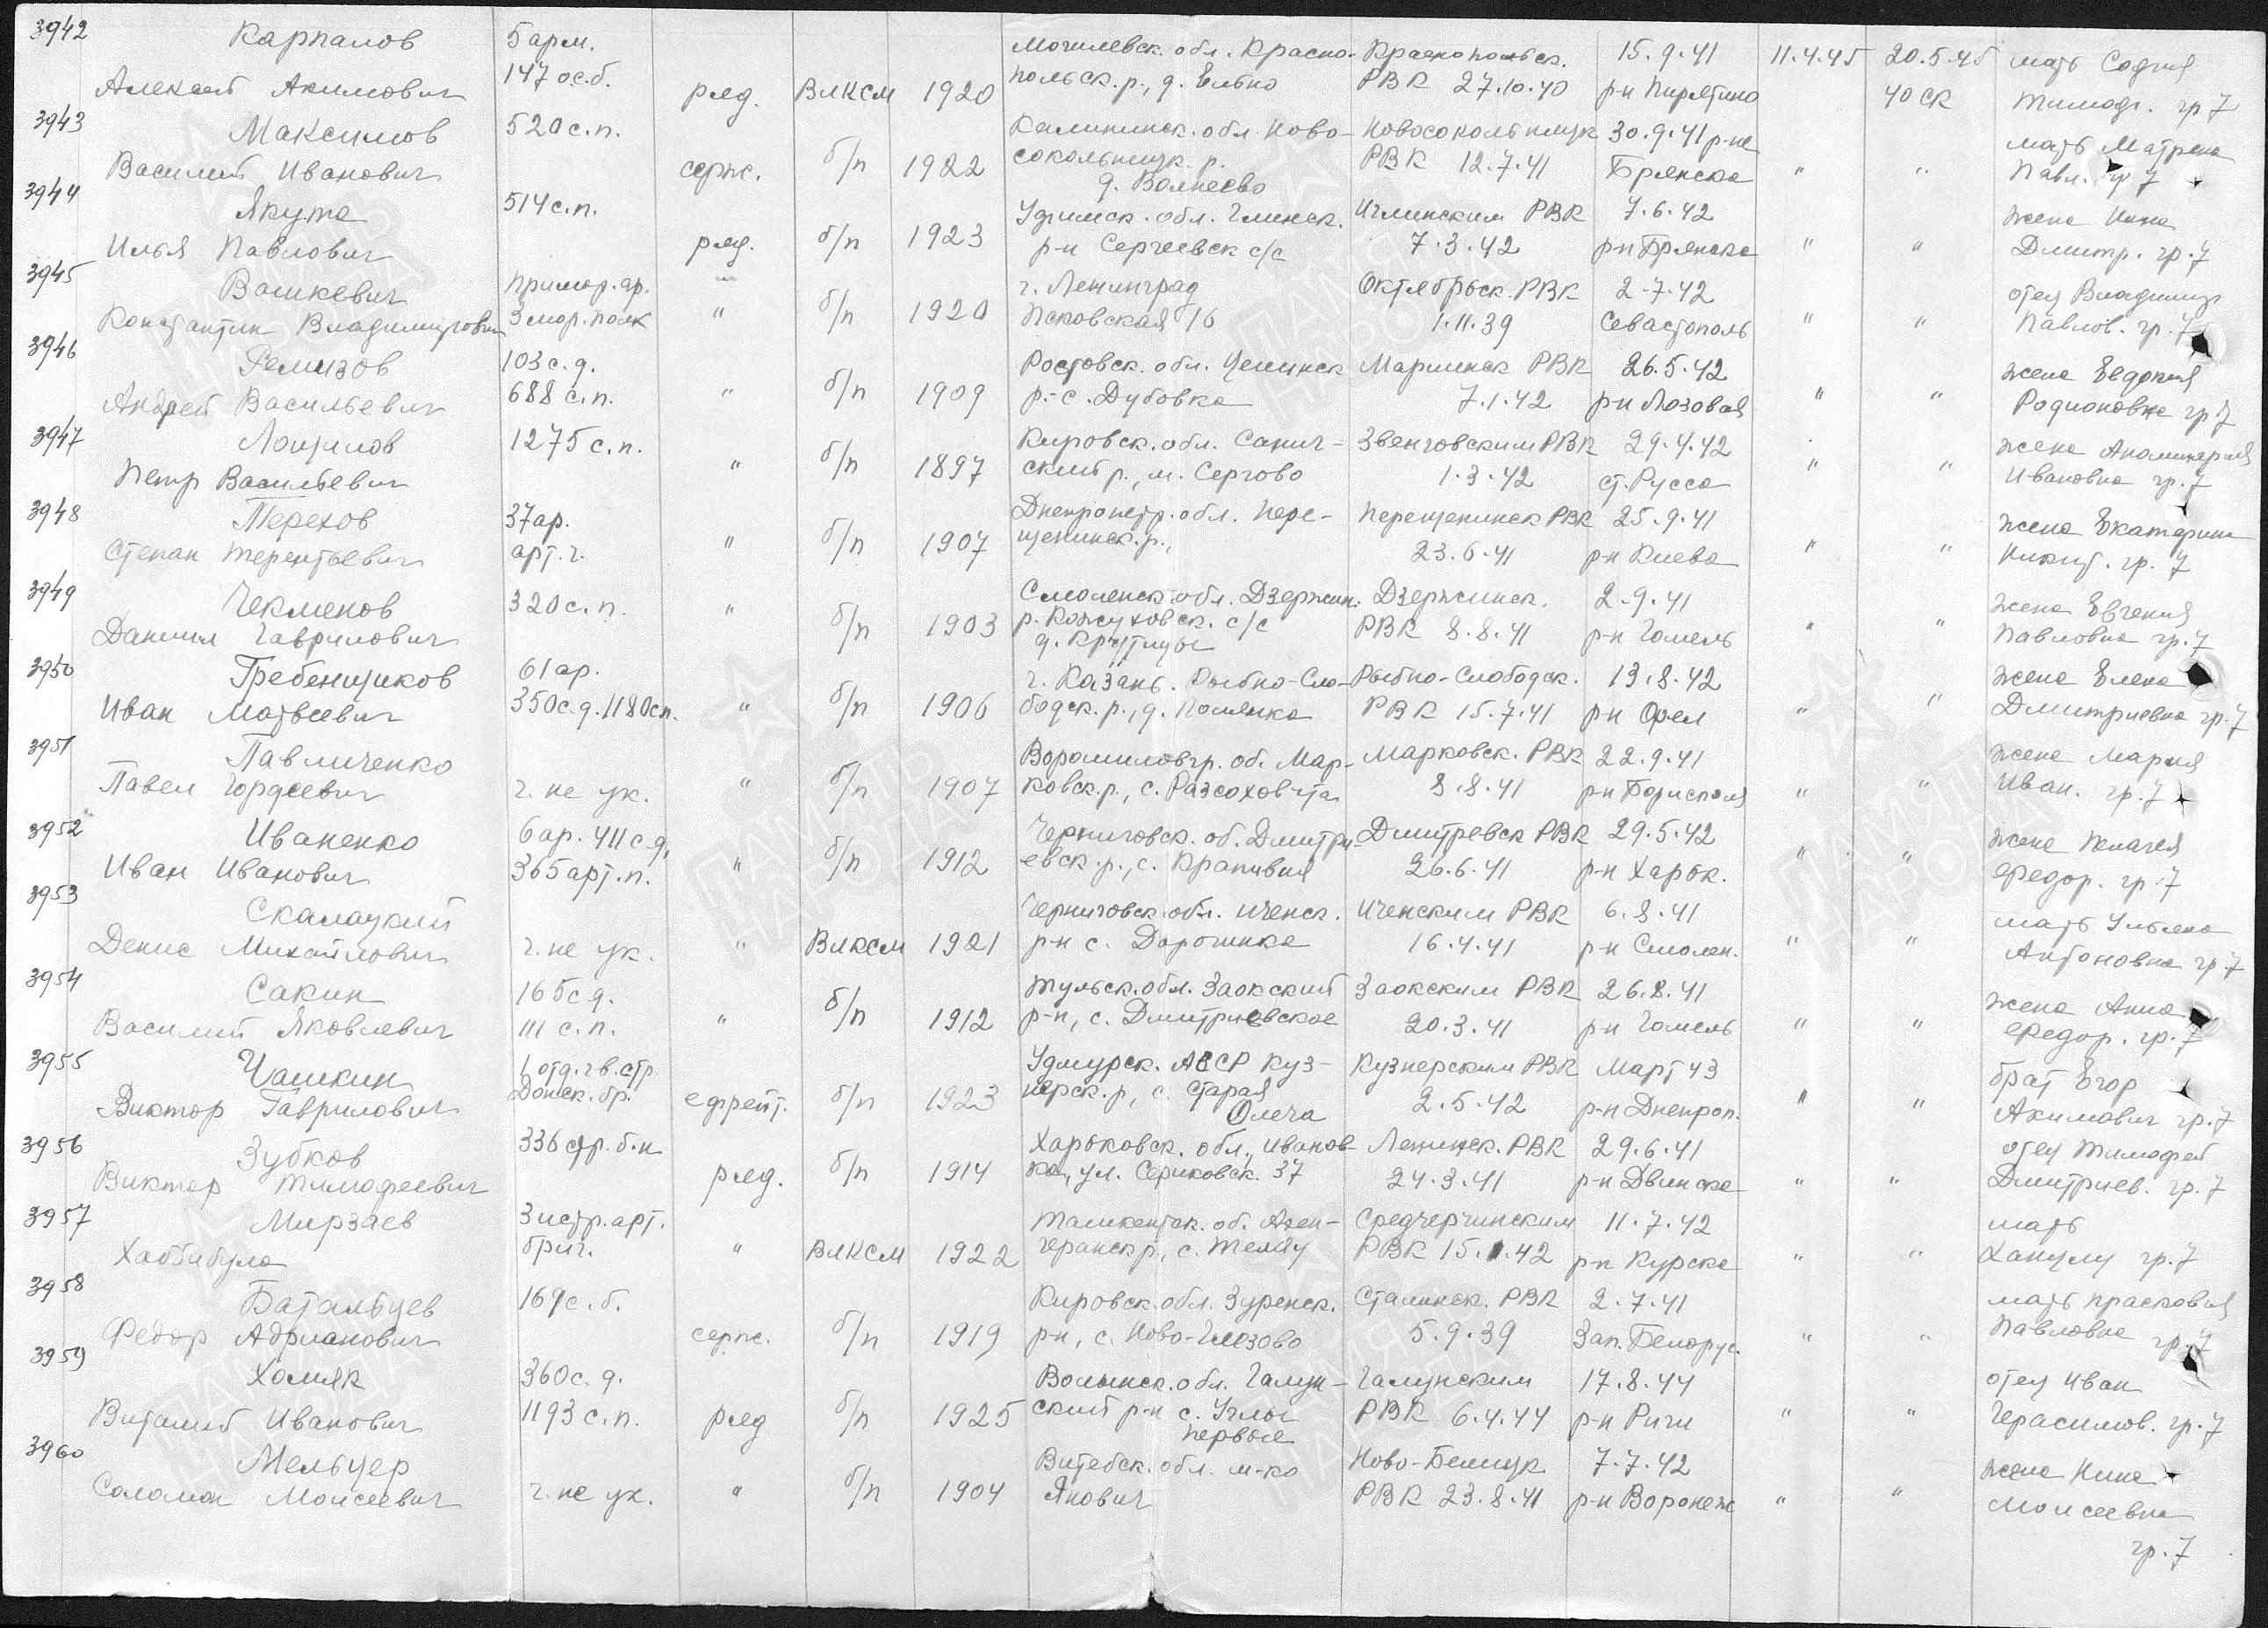 3942 Карпалов 5 арм. Могилевск. обл. Красно- Краснопольск. 15.9.41 11.4.45 20.5.45 мать София
Алексей Акимович 147 о.с.б. ряд. ВЛКСМ 1920 польск. р., д. Ельно РВК 27.10.40 р-н Пирятино 40 СК Тимоф. гр 7
3943 Максимов 520 с.п. Калининск. обл. Ново- Новосокольницк 30.9.41 р-не мать Матрена
Василий Иванович серж. б/п 1922 сокольницк. р. РВК 12.7.41 Брянска " " Павл. гр 7
д. Волнеево
3944 Якута 514 с.п. Уфимск. обл. Глинск. Иглинским РВК 7.6.42 жена Нина
Илья Павлович ряд. б/п 1923 р-н Сергеевск с/с 7.3.42 р-н Брянска " " Дмитр. гр. 7
3945 Вашкевич Примор. ар. г. Ленинград Октябрьск. РВК 2.7.42 отец Владимир
Константин Владимирович 3 мор. полк " б/п 1920 Псковская 16 1.11.39 Севастополь " " Павлов. гр. 7
3946 Ремизов 103 с.д. Ростовск. обл. Целинск Марлинск РВК 26.5.42 жена Евдокия
Андрей Васильевич 688 с.п. " б/п 1909 р.-с. Дубовка 7.1.42 р-н Лозовая " " Родионовна гр 7
3947 Лощилов 1275 с.п. Кировск. обл. Санч- Звенговским РВК 29.4.42 жена Аполинария
Петр Васильевич " б/п 1897 ский р., м. Сергово 1.3.42 ст. Русса " " Ивановна гр. 7
3948 Терехов 37 ар. Днепропетр. обл. Пере- Перещепинск РВК 25.9.41 жена Екатерина
Степан Терентьевич арт. ч. " б/п 1907 щепинск. р., 23.6.41 р-н Киева " " Никит. гр. 7
3949 Чекменов 320 с.п. " Смоленск. обл. Дзержин. Дзержинск. 2.9.41 жена Евгения
Даниил Гаврилович б/п 1903 р. Кожуховск. с/с РВК 8.8.41 р-н Гомель " " Павловна гр. 7
д. Крутицы
3950 Гребенщиков 61 ар. г. Казань. Рыбно-Сло- Рыбно-Слободск. 13.8.42 жена Елена
Иван Матвеевич 350 с.д. 1180 сп. " б/п 1906 бодск. р., д. Полянка РВК 15.7.41 р-н Орел " " Дмитриевна гр. 7
3951 Павличенко Ворошиловгр. об. Мар- Марковск. РВК 22.9.41 жена Мария
Павел Гордеевич ч. не ук. " б/п 1907 ковск. р., с. Разсоховата 8.8.41 р-н Борисполя " " Иван. гр. 7
3952 Иваненко 6 ар. 411 с.д. Черниговск. об. Дмитри- Дмитревск РВК 29.5.42 жена Пелагея
Иван Иванович 365 арт. п. " б/п 1912 евск. р., с. Крапивня 26.6.41 р-н Харьк. " " Федор. гр. 7
3953 Скалацкий Черниговск. обл. Иченск. Иченским РВК 6.8.41 мать Ульяна
Денис Михайлович ч. не ук. " ВЛКСМ 1921 р-н с. Дорогинка 16.4.41 р-н Смолен. " " Антоновна гр. 7
3954 Сакин 165 с.д. Тульск. обл. Заокский Заокским РВК 26.8.41 жена Анна
Василий Яковлевич 111 с.п. " б/п 1912 р-н, с. Дмитриевское 20.3.41 р-н Гомель " " Федор. гр. 7
3955 Чашкин 1 отд. гв. стр. Удмурск. АССР Куз- Кузнерским РВК Март 43 брат Егор
Виктор Гаврилович Донск. бр. ефрейт. б/п 1923 нерск. р, с. Старая 2.5.42 р-н Днепроп. " " Акимович гр. 7
Олеча
3956 Зубков 336 стр. б-н Харьковск. обл., Иванов- Ленинск. РВК 29.6.41 отец Тимофей
Виктор Тимофеевич ряд. б/п 1914 ка, ул. Сериковск. 37 24.3.41 р-н Двинска " " Дмитриев. гр. 7
3957 Мирзаев 3 истр. арт. Ташкентск. об. Ахен- Средчерчинским 11.7.42 мать
Хаббибула бриг. " ВЛКСМ 1922 геранск р., с. Теляу РВК 15.1.42 р-н Курска " " Ханулу гр. 7
3958 Батальцев 169 с.б. Кировск. обл. Зуренск. Сталинск. РВК 2.7.41 мать Прасковия
Федор Адрианович серж. б/п 1919 р-н, с. Ново-Глазово 5.9.39 Зап. Белорус. " " Павловна гр. 7
3959 Хомяк 360 с.д. Волынск. обл. Галун- Галунским 17.8.44 отец Иван
Виталий Иванович 1193 с.п. ряд б/п 1925 ский р-н с. Углы РВК 6.4.44 р-н Риги " " Герасимов. гр. 7
первые
3960 Мельцер Витебск. обл. м-ко Ново-Белицк 7.7.42 жена Нина
Соломон Моисеевич ч. не ук. " б/п 1904 Янович РВК 23.8.41 р-н Воронеж " " Моисеевна
гр. 7